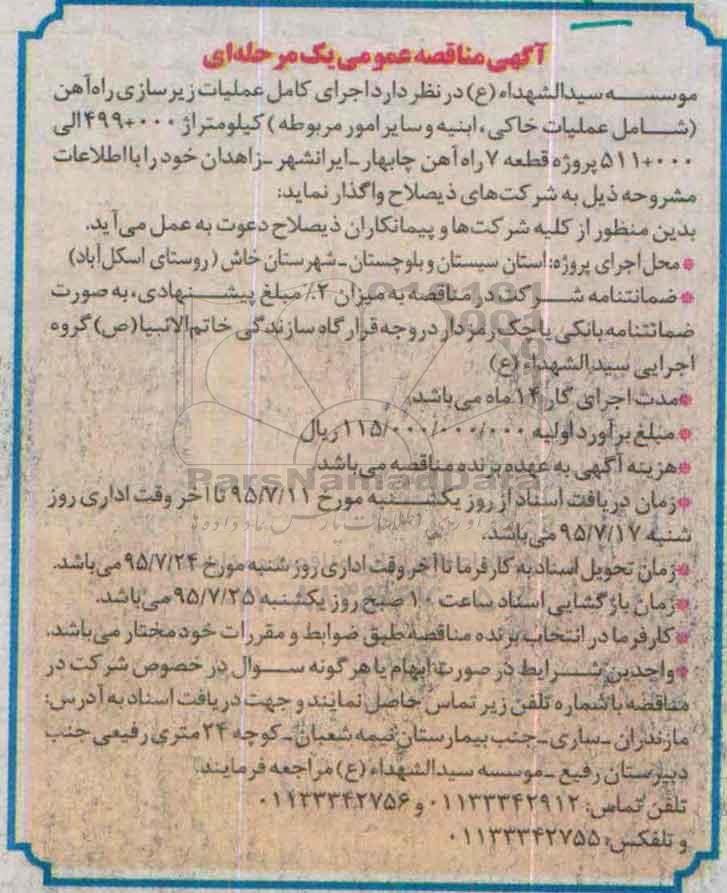 آگهی مناقصه عمومی یک مرحله‌ای
موسسه سیدالشهداء (ع) در نظر دارد اجرای کامل عملیات زیرسازی راه‌آهن
(شامل عملیات خاکی، ابنیه و سایر امور مربوطه) کیلومتراژ ۰۰۰+۴۹۹ الی
۰۰۰+۵۱۱ پروژه قطعه ۷ راه آهن چابهار ـ ایرانشهر ـ زاهدان خود را با اطلاعات
مشروحه ذیل به شرکت‌های ذیصلاح واگذار نماید:
بدین منظور از کلیه شرکت‌ها و پیمانکاران ذیصلاح دعوت به عمل می‌آید.
* محل اجرای پروژه: استان سیستان و بلوچستان ـ شهرستان خاش (روستای اسکل‌آباد)
* ضمانتنامه شرکت در مناقصه به میزان ۲٪ مبلغ پیشنهادی، به صورت
ضمانتنامه بانکی یا چک رمزدار در وجه قرارگاه سازندگی خاتم‌الانبیا (ص) گروه
اجرایی سیدالشهداء (ع)
* مدت اجرای کار ۱۴ ماه می‌باشد.
* مبلغ برآورد اولیه ۱۱۵/۰۰۰/۰۰۰/۰۰۰ ریال
* هزینه آگهی به عهده برنده مناقصه می‌باشد.
ParsNamadData
* زمان دریافت اسناد از روز یکشنبه مورخ ۹۵/۷/۱۱ تا آخر وقت اداری روز
شنبه ۹۵/۷/۱۷ می‌باشد.
* زمان تحویل اسناد به کارفرما تا آخر وقت اداری روز شنبه مورخ ۹۵/۷/۲۴ می‌باشد.
* زمان بازگشایی اسناد ساعت ۱۰ صبح روز یکشنبه ۹۵/۷/۲۵ می‌باشد.
* کارفرما در انتخاب برنده مناقصه طبق ضوابط و مقررات خود مختار می‌باشد.
* واجدین شرایط در صورت ابهام یا هرگونه سوال در خصوص شرکت در
مناقصه با شماره تلفن زیر تماس حاصل نمایند و جهت دریافت اسناد به آدرس:
مازندران ـ ساری ـ جنب بیمارستان نیمه شعبان ـ کوچه ۲۴ متری رفیعی جنب
دبیرستان رفیع ـ موسسه سیدالشهداء (ع) مراجعه فرمایند.
تلفن تماس: ۰۱۱۳۳۳۴۲۹۱۲ و ۰۱۱۳۳۳۴۲۷۵۶
و تلفکس: ۰۱۱۳۳۳۴۲۷۵۵